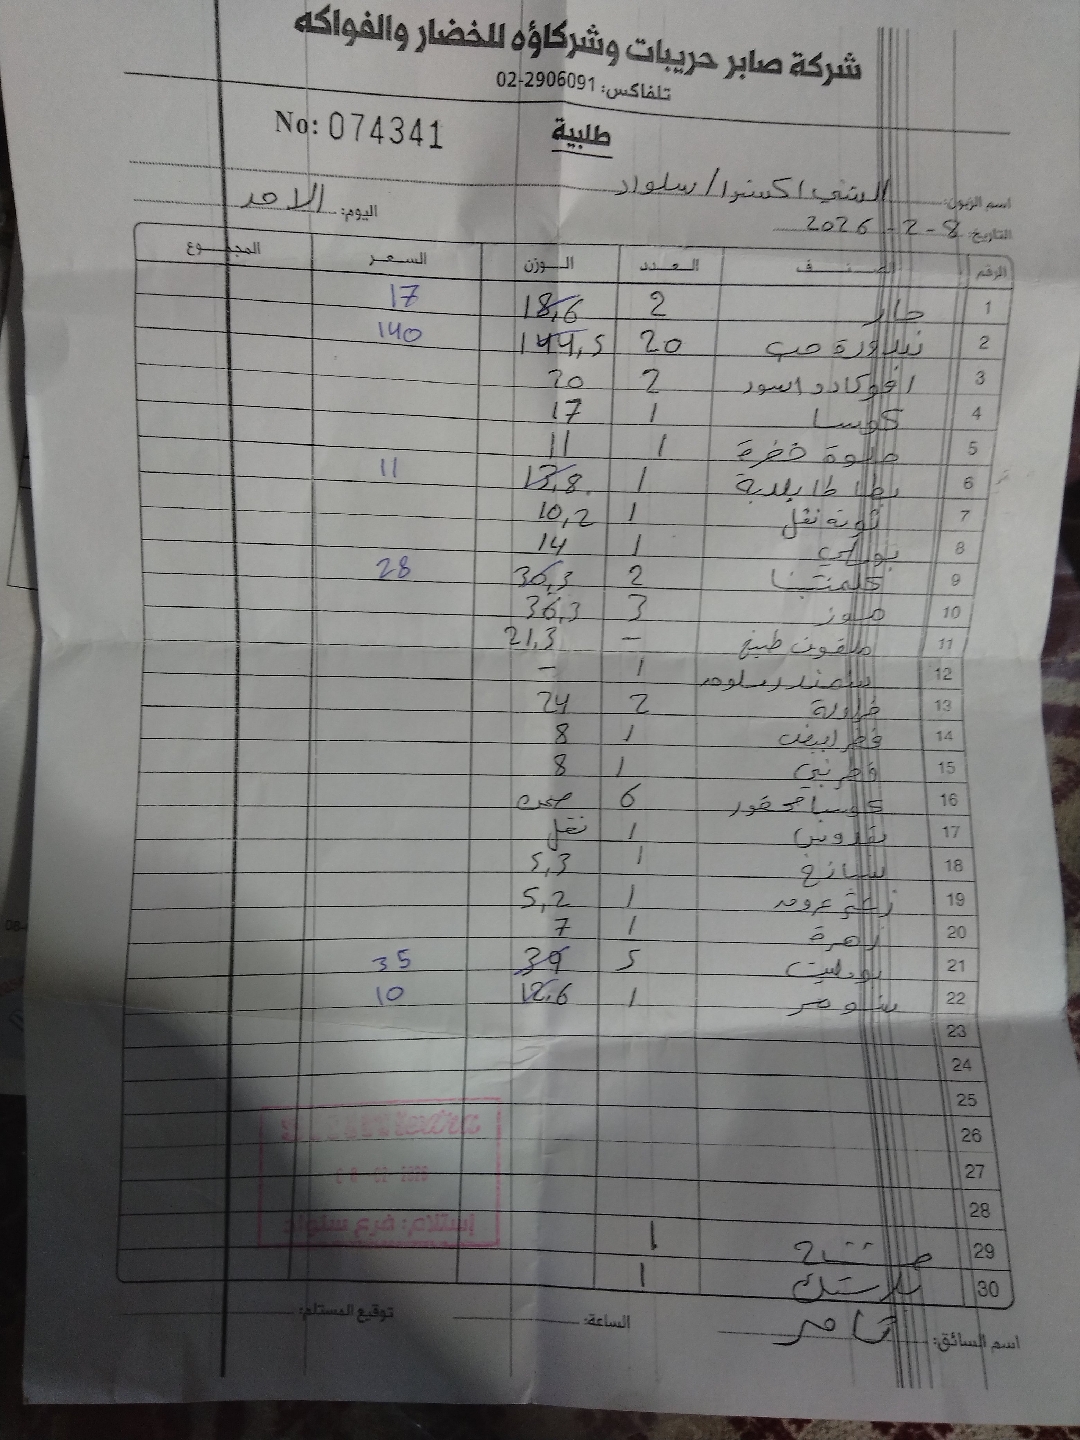 شركة صابر حريبات وشركاؤه للخضار والفواكه
تلفاكس: 02-2906091
No: 074341 طلبية
اسم الزبون: الشني اكسترا / سلواد
اليوم: الاحد
التاريخ: 8-2-2026
الرقم الصنف العدد الوزن السعر المجموع
1 حار 2 18,6 17
2 بندورة حب 20 144,5 140
3 افوكادو اسود 2 20
4 كوسا 1 17
5 حلوة خضرة 1 11
6 بطاطا بلدية 1 13,8 11
7 ثومة نقل 1 10,2
8 1 14
9 كلمنتينا 2 30,3 28
10 موز 3 36,3
11 ملفوف طبيخ - 21,3
12 1 -
13 فراولة 2 24
14 فطر ابيض 1 8
15 فطر بني 1 8
16 كوسا محفور 6 صحن
17 بقدونس 1 نقل
18 سبانخ 1 5,3
19 زعتر 1 5,2
20 زهرة 1 7
21 بوملي 5 39 35
22 1 12,6 10
23
24
25
26
27
28
29 1
30 بلاستك 1
إستلام: فرع سلواد
اسم السائق: تامر
الساعة:
توقيع المستلم: